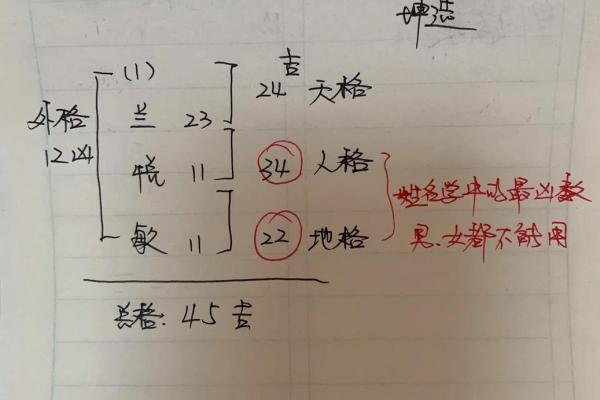 坤造
(1)
吉
24 天格
外格
兰 23
12凶
悦 11
34 人格
姓名学中的最凶数
男、女都不能用
敏 11
22 地格
总格: 45 吉